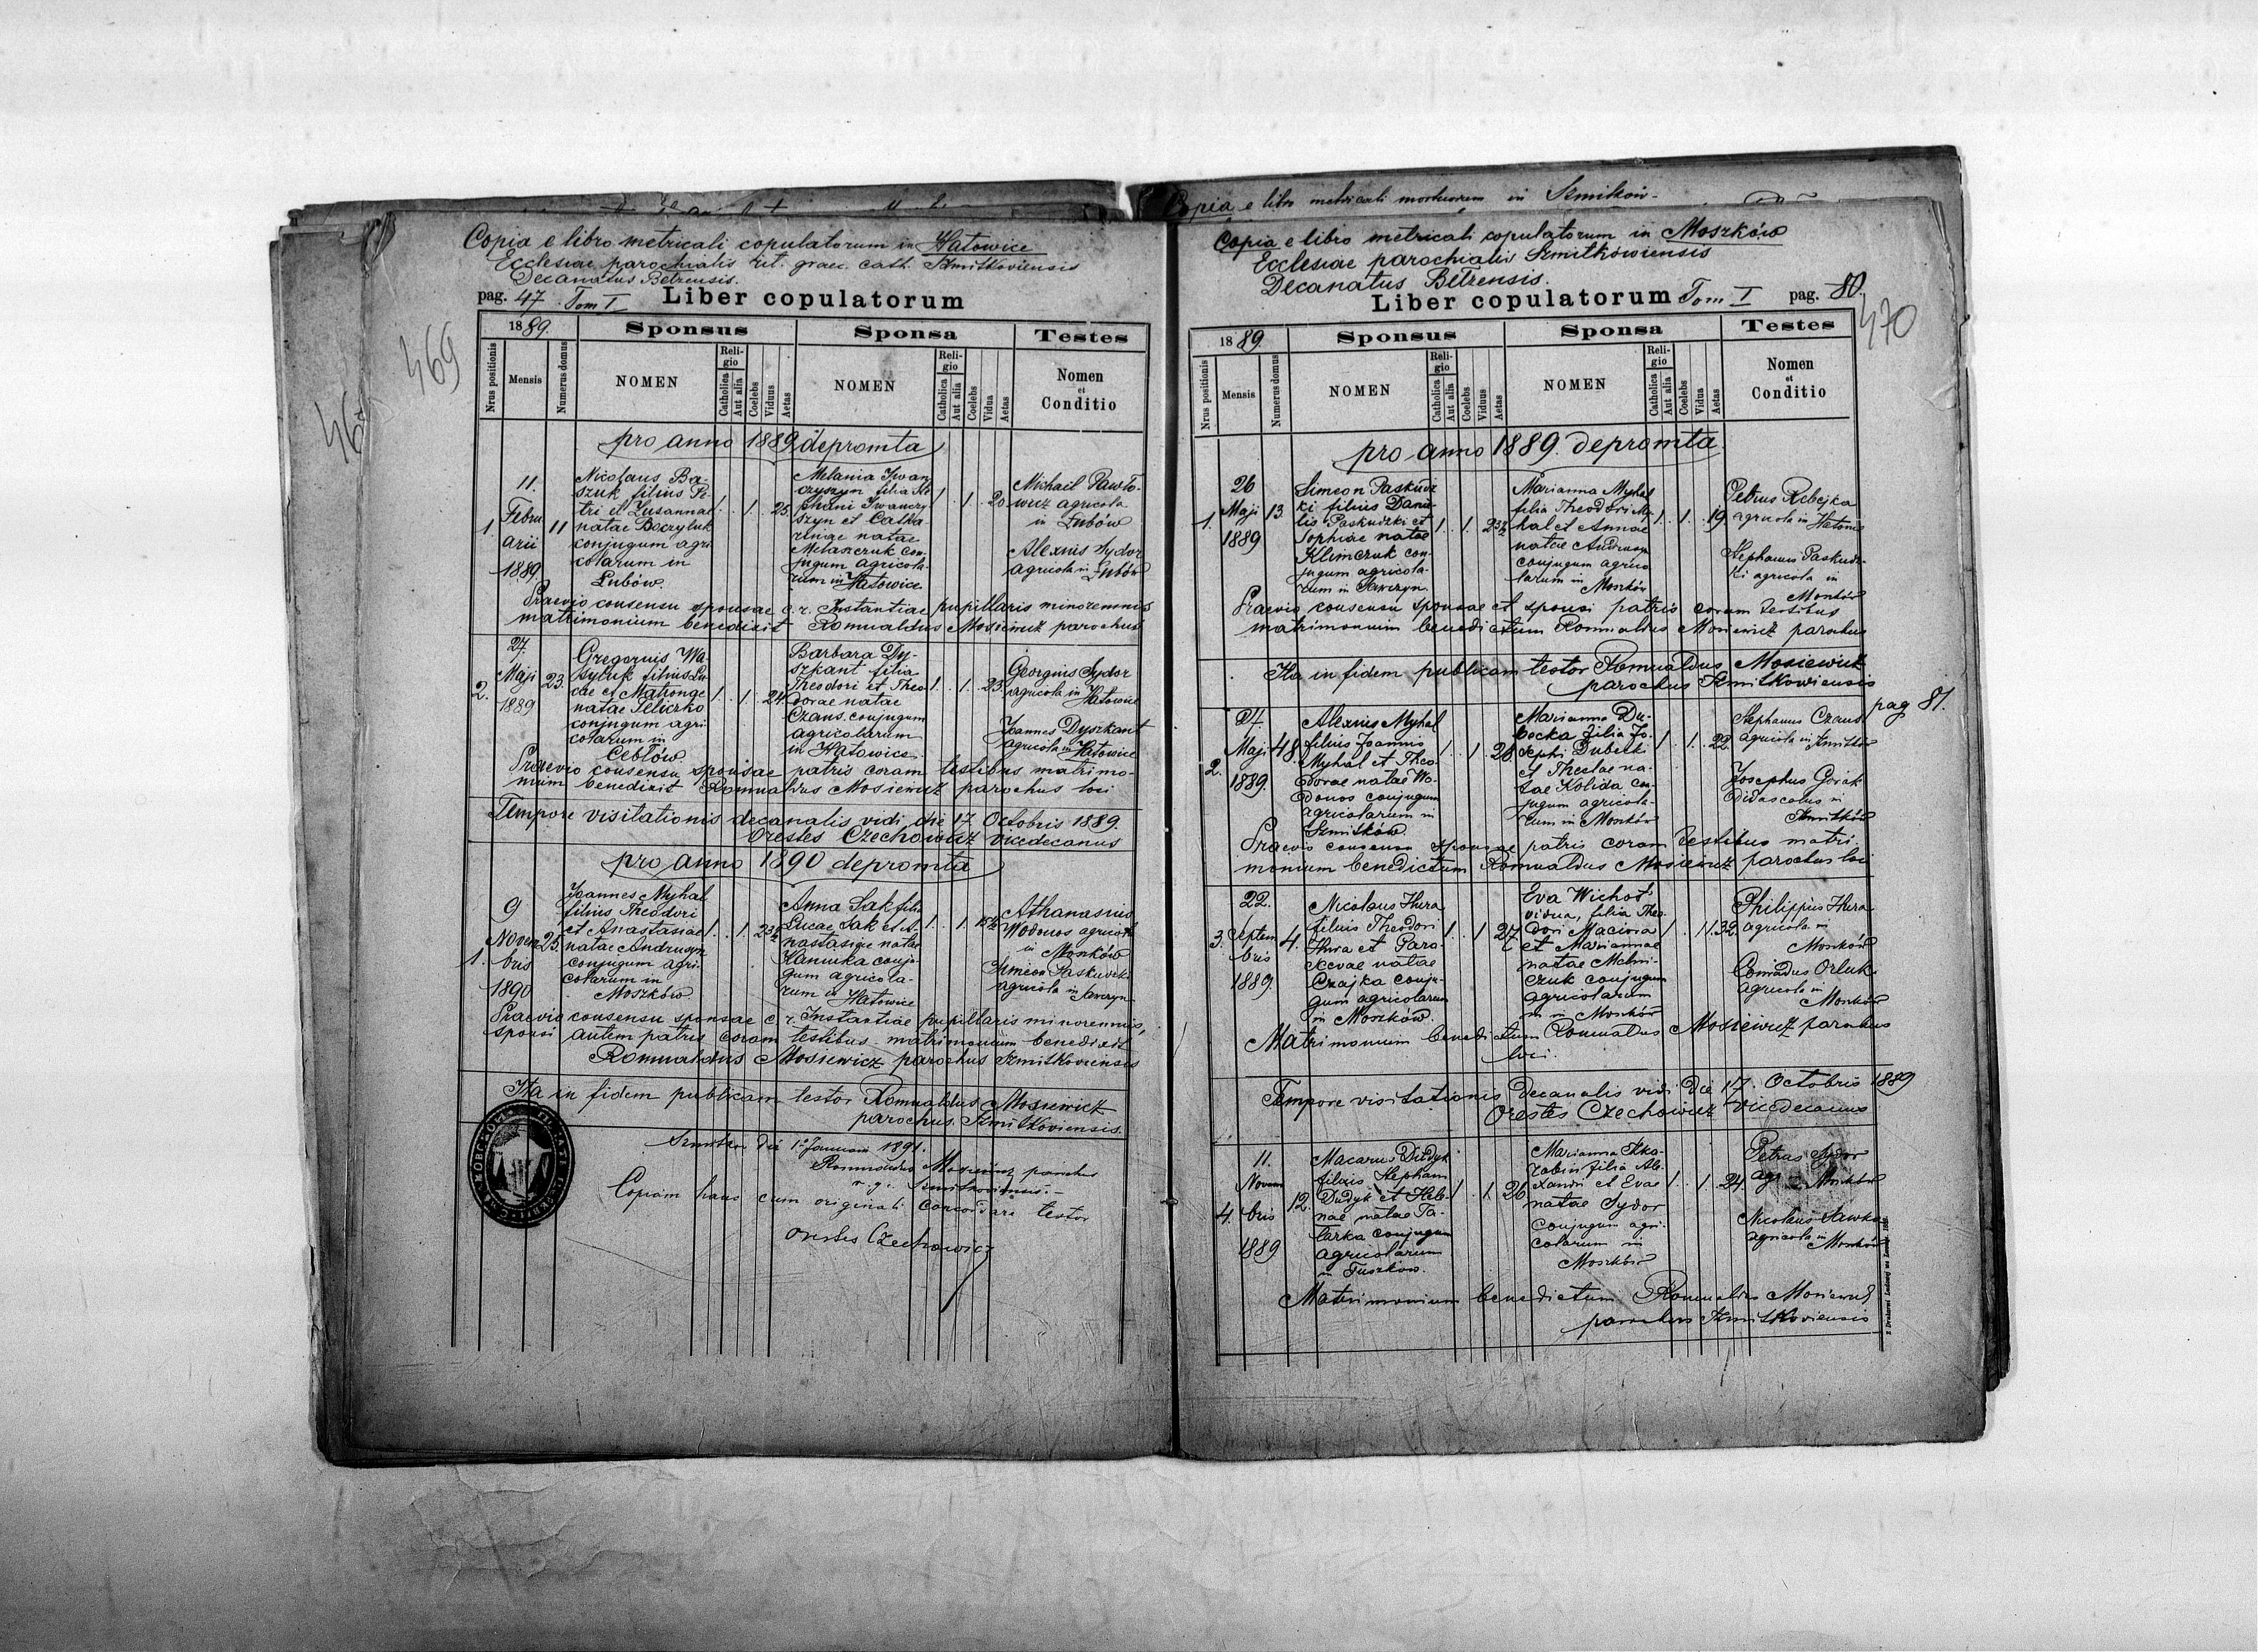 Copia e libro metricali mortuorum in Szmitków
469
Copia e libro metricali copulatorum in Hatowice
Ecclesiae parochialis rit. graec. cath. Szmitkoviensis
Decanatus Belzensis.
pag. 47. Tom I Liber copulatorum
1889. Sponsus Sponsa Testes
Nrus positionis Mensis Numerus domus NOMEN Religio Catholica Aut alia Coelebs Viduus Aetas NOMEN Religio Catholica Aut alia Coelebs Vidua Aetas Nomen et Conditio
pro anno 1889 depromta
1.
11.
Febru
arii
1889
11
Nicolaus Ba-
szuk filius Pe-
tri et Zusannae
natae
conjugum agri
colarum in
Lubów.
1. 1. 25.
Melania Iwan
czyszyn filia Ste
phani Iwanczy
szyn et Catha
rinae natae
Melaszczuk con-
jugum agricola-
rum in Hatowice
1. 1. 20
Michael Pawlo-
wicz agricola
in Lubów
Alexius Sydor
agricola in Lubów
Praevio consensu sponsae c. r. Instantiae pupillaris minorennis
matrimonium benedixit Romualdus Mosiewicz parochus
2.
27
Maji
1889
23.
Gregorius Wa-
sylyk filius Lu
cae et Matronae
natae Seliczko
conjugum agri
colarum in
Cebłów.
1. 1. 24.
Barbara Dy-
szkant filia
Theodori et Theo
dorae natae
Czaus conjugum
agricolarum
in Hatowice
1. 1. 23.
Georgius Sydor
agricola in Hatowice
Joannes Dyszkant
agricola in Hatowice
Praevio consensu sponsae patris coram testibus matrimo-
nium benedixit Romualdus Mosiewicz parochus loci
Tempore visitationis decanalis vidi die 17 Octobris 1889.
Orestes Czechowicz vicedecanus
pro anno 1890 depromta
1.
9
Novem
bris
1890
25.
Joannes Myhal
filius Theodori
et Anastasiae
natae Andrusyn
conjugum agri-
colarum in
Moszków
1. 1. 23
Anna Sak filia
Lucae Sak et A-
nastasiae natae
conju-
gum agricola-
rum in Hatowice
1. 1.
Athanasius
Wodonos agricola
in Moszków
Simeon Paskudzki
agricola in Sawczyn
Praevio consensu sponsae c. r. Instantiae pupillaris minorennis,
sponsi autem patris coram testibus matrimonium benedixit
Romualdus Mosiewicz parochus Szmitkoviensis
Ita in fidem publicam testor Romualdus Mosiewicz
parochus Szmitkoviensis.
Szmitków die 1a Januarii 1891.
Romualdus Mosiewicz parochus
r. g. Szmitkoviensis.
Copiam hanc cum originali concordare testor
Orestes Czechowicz
470
Copia e libro metricali copulatorum in Moszków
Ecclesiae parochialis Szmitkowiensis
Decanatus Belzensis.
Liber copulatorum Tom I pag. 80.
1889. Sponsus Sponsa Testes
Nrus positionis Mensis Numerus domus NOMEN Religio Catholica Aut alia Coelebs Viduus Aetas NOMEN Religio Catholica Aut alia Coelebs Vidua Aetas Nomen et Conditio
pro anno 1889. depromta
1.
26
Maji
1889
13.
Simeon Paskudz
ki filius Danie
lis Paskudzki et
Sophiae natae
Klimczuk con-
jugum agricola-
rum in Sawczyn.
1. 1. 23
Marianna Myhal
filia Theodori My-
hal et Annae
natae Andrusyn
conjugum agrico
larum in
Moszków
1. 1. 19.
Petrus Rebejka
agricola in Hatowice
Stephanus Paskudz-
ki agricola in
Moszków
Praevio consensu sponsae et sponsi patris coram testibus
matrimonium benedictum Romualdus Mosiewicz parochus
Ita in fidem publicam testor Romualdus Mosiewicz
parochus Szmitkowiensis
pag 81.
2.
24
Maji
1889.
48.
Alexius Myhal
filius Joannis
Myhal et Theo
dorae natae Wo-
donos conjugum
agricolarum in
Szmitków.
1. 1. 26.
Marianna Du-
becka filia Jo-
sephi Dubecki
et Theclae na-
tae Kolida con-
jugum agricola-
rum in Moszków
1. 1. 22.
Stephanus Czaus
agricola in Szmitków
Josephus Gorak
didascalus in
Szmitków
Praevio consensu sponsae patris coram testibus matri-
monium benedictum Romualdus Mosiewicz parochus loci
3.
22.
Septem
bris
1889.
4.
Nicolaus Hura
filius Theodori
Hura et Para-
scevae natae
Czajka conju-
gum agricolarum
in Moszków.
1. 1. 27
Eva Wichot
vidua, filia Theo-
dori Maciora
et Mariannae
natae Melni-
czuk conjugum
agricolarum
in Moszków
1. 1. 32.
Philippus Hura
agricola in
Moszków
Conradus Orluk
agricola in
Moszków
Matrimonium benedictum Romualdus Mosiewicz parochus
loci.
Tempore visitationis decanalis vidi die 17. Octobris 1889
Orestes Czechowicz Vicedecanus
4.
11.
Novem
bris
1889
12.
Macarius Dudyk
filius Stephani
Dudyk et Hele-
nae natae Ta-
tarka conjugum
agricolarum
in Tuszków.
1. 1. 26
Marianna
filia Ale-
xandri et Evae
natae Sydor
conjugum agri-
colarum in
Moszków
1. 1. 24.
Petrus Sydor
agr. Moszków
Nicolaus Sawka
agricola in
Moszków
Matrimonium benedictum Romualdus Mosiewicz
parochus Szmitkoviensis